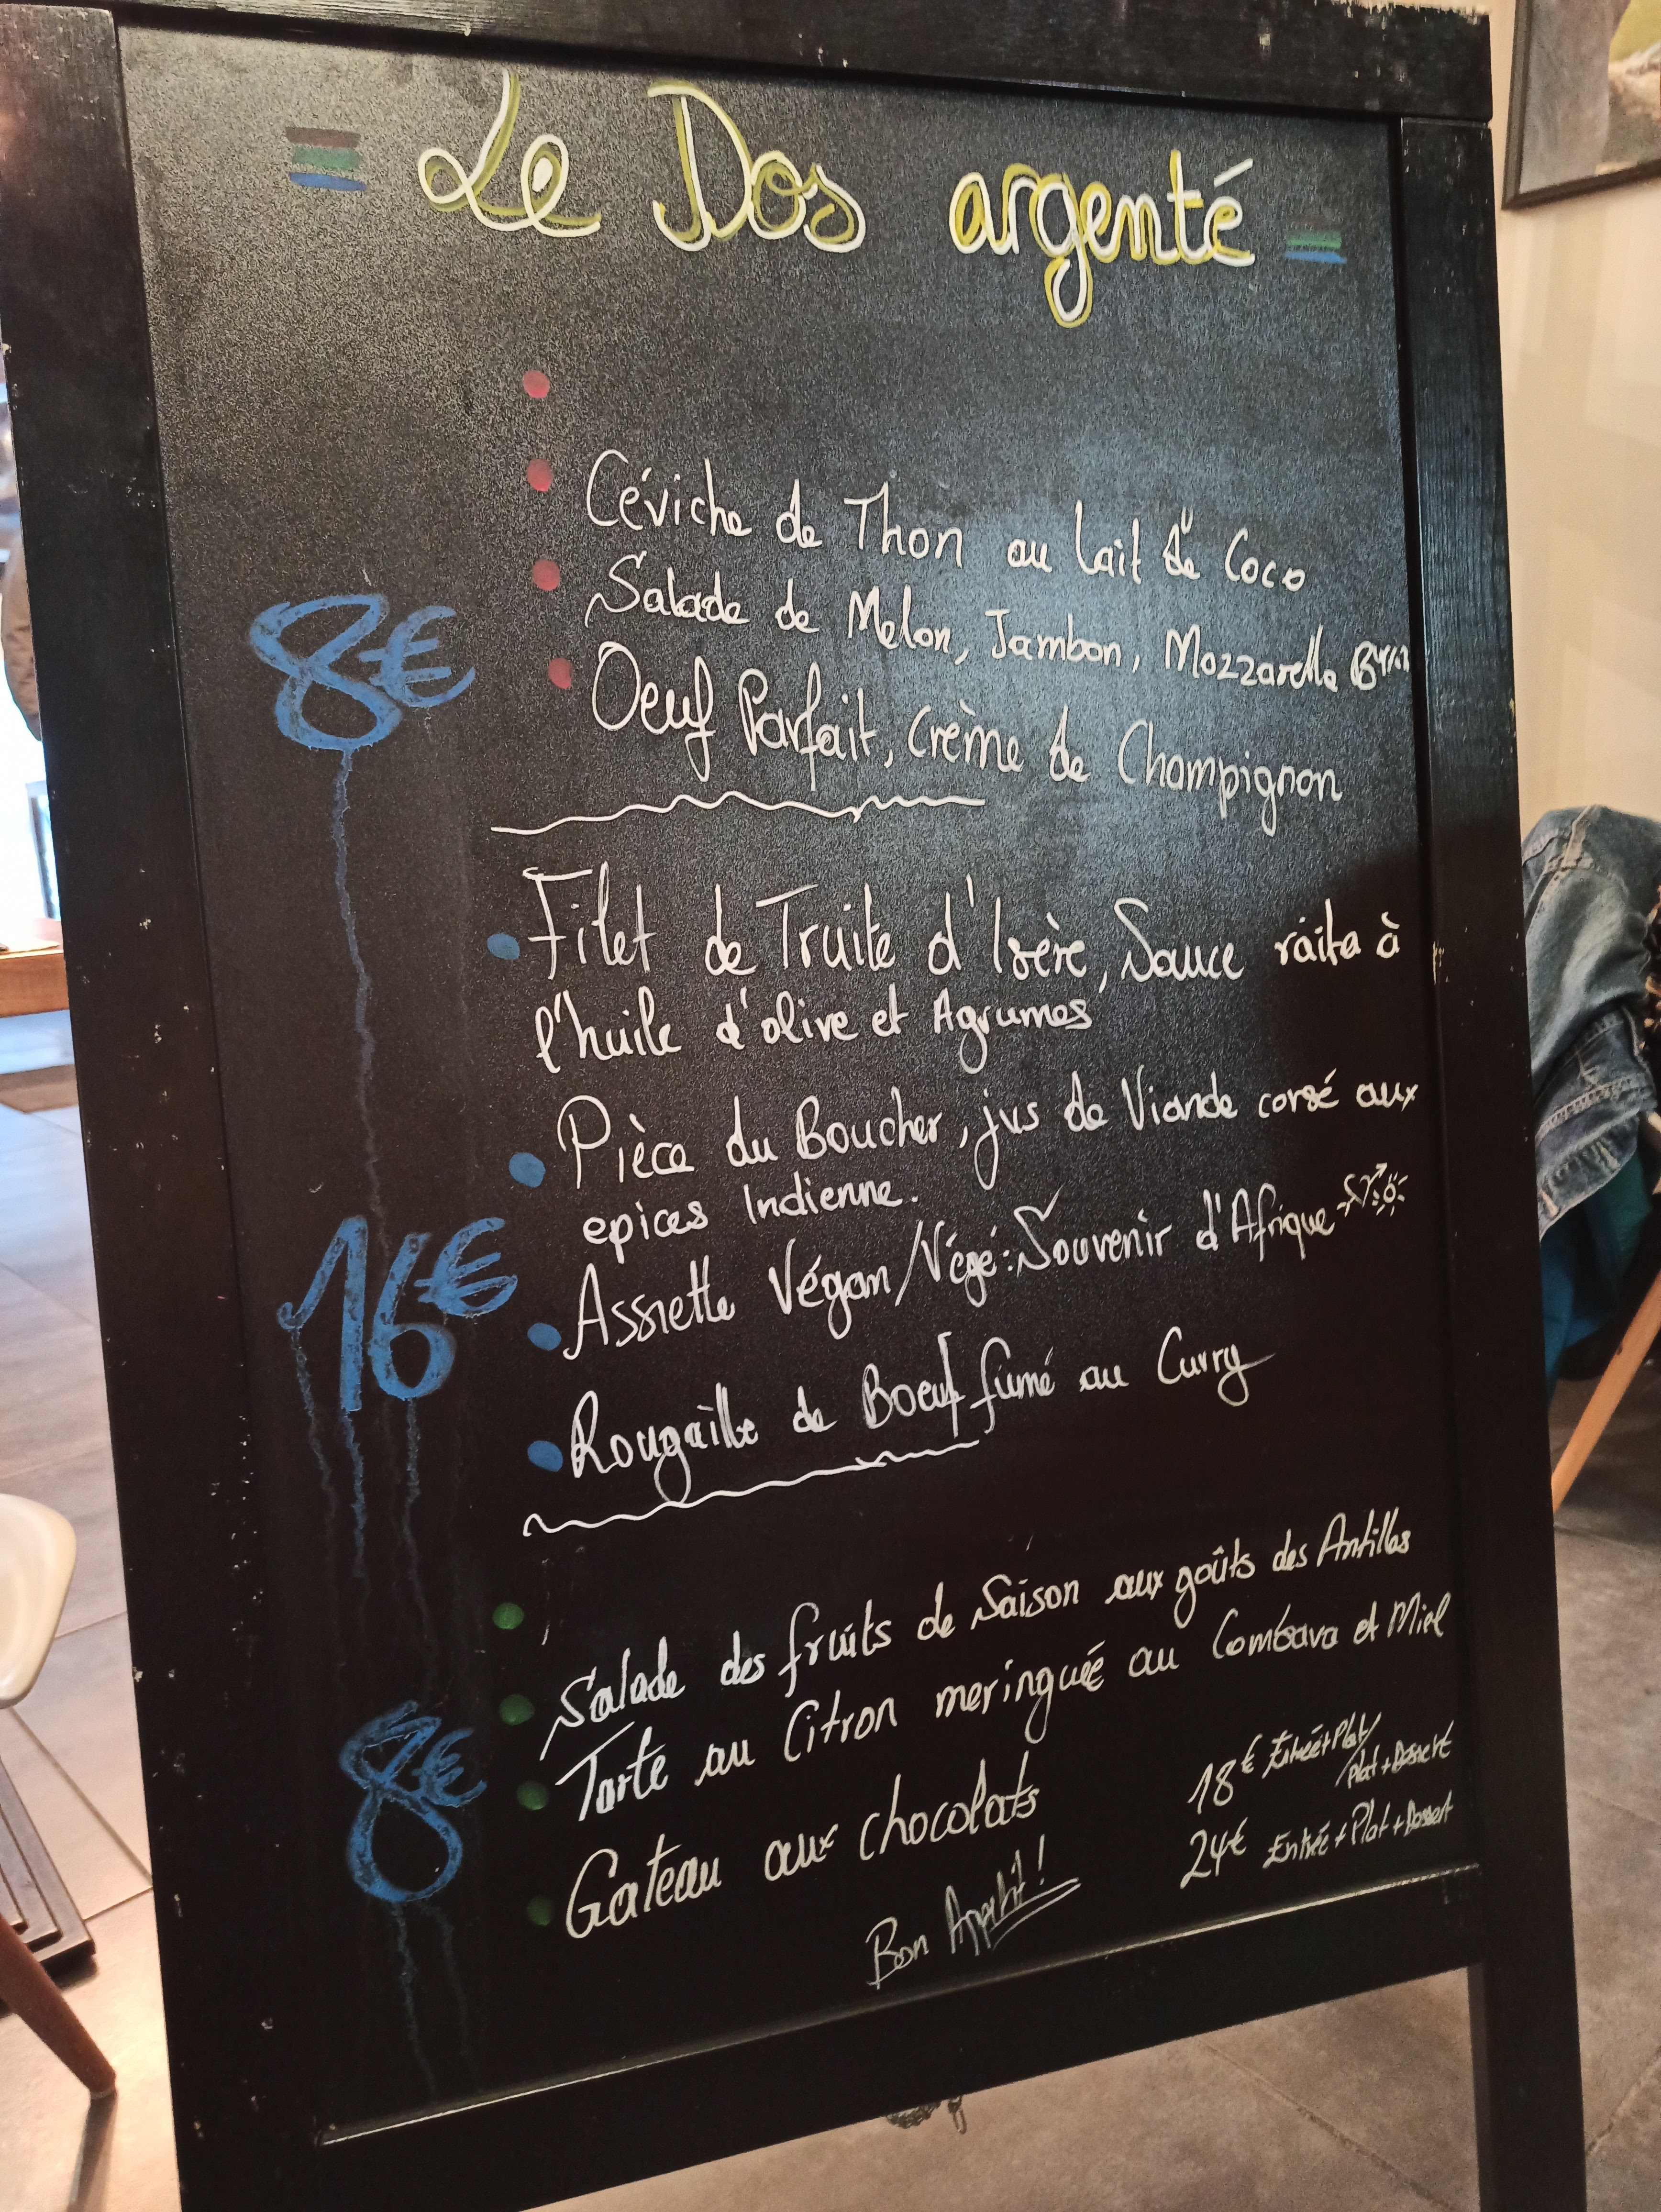 Le Dos argenté
Céviche de Thon au lait de Coco
Salade de Melon, Jambon, Mozzarella
8€
Oeuf Parfait, crème de Champignon
Filet de Truite d'Isère, Sauce raita à
l'huile d'olive et Agrumes
Pièce du Boucher, jus de Viande corsé aux
epices Indienne.
16€
Assiette Végan/Végé: Souvenir d'Afrique
Rougaille de Boeuf fumé au Curry
Salade des fruits de Saison aux goûts des Antilles
Tarte au Citron meringuée au Combava et Miel
8€
Gateau aux chocolats
18€ Entrée+Plat/
Plat+Dessert
24€ Entrée+Plat+Dessert
Bon Appétit!